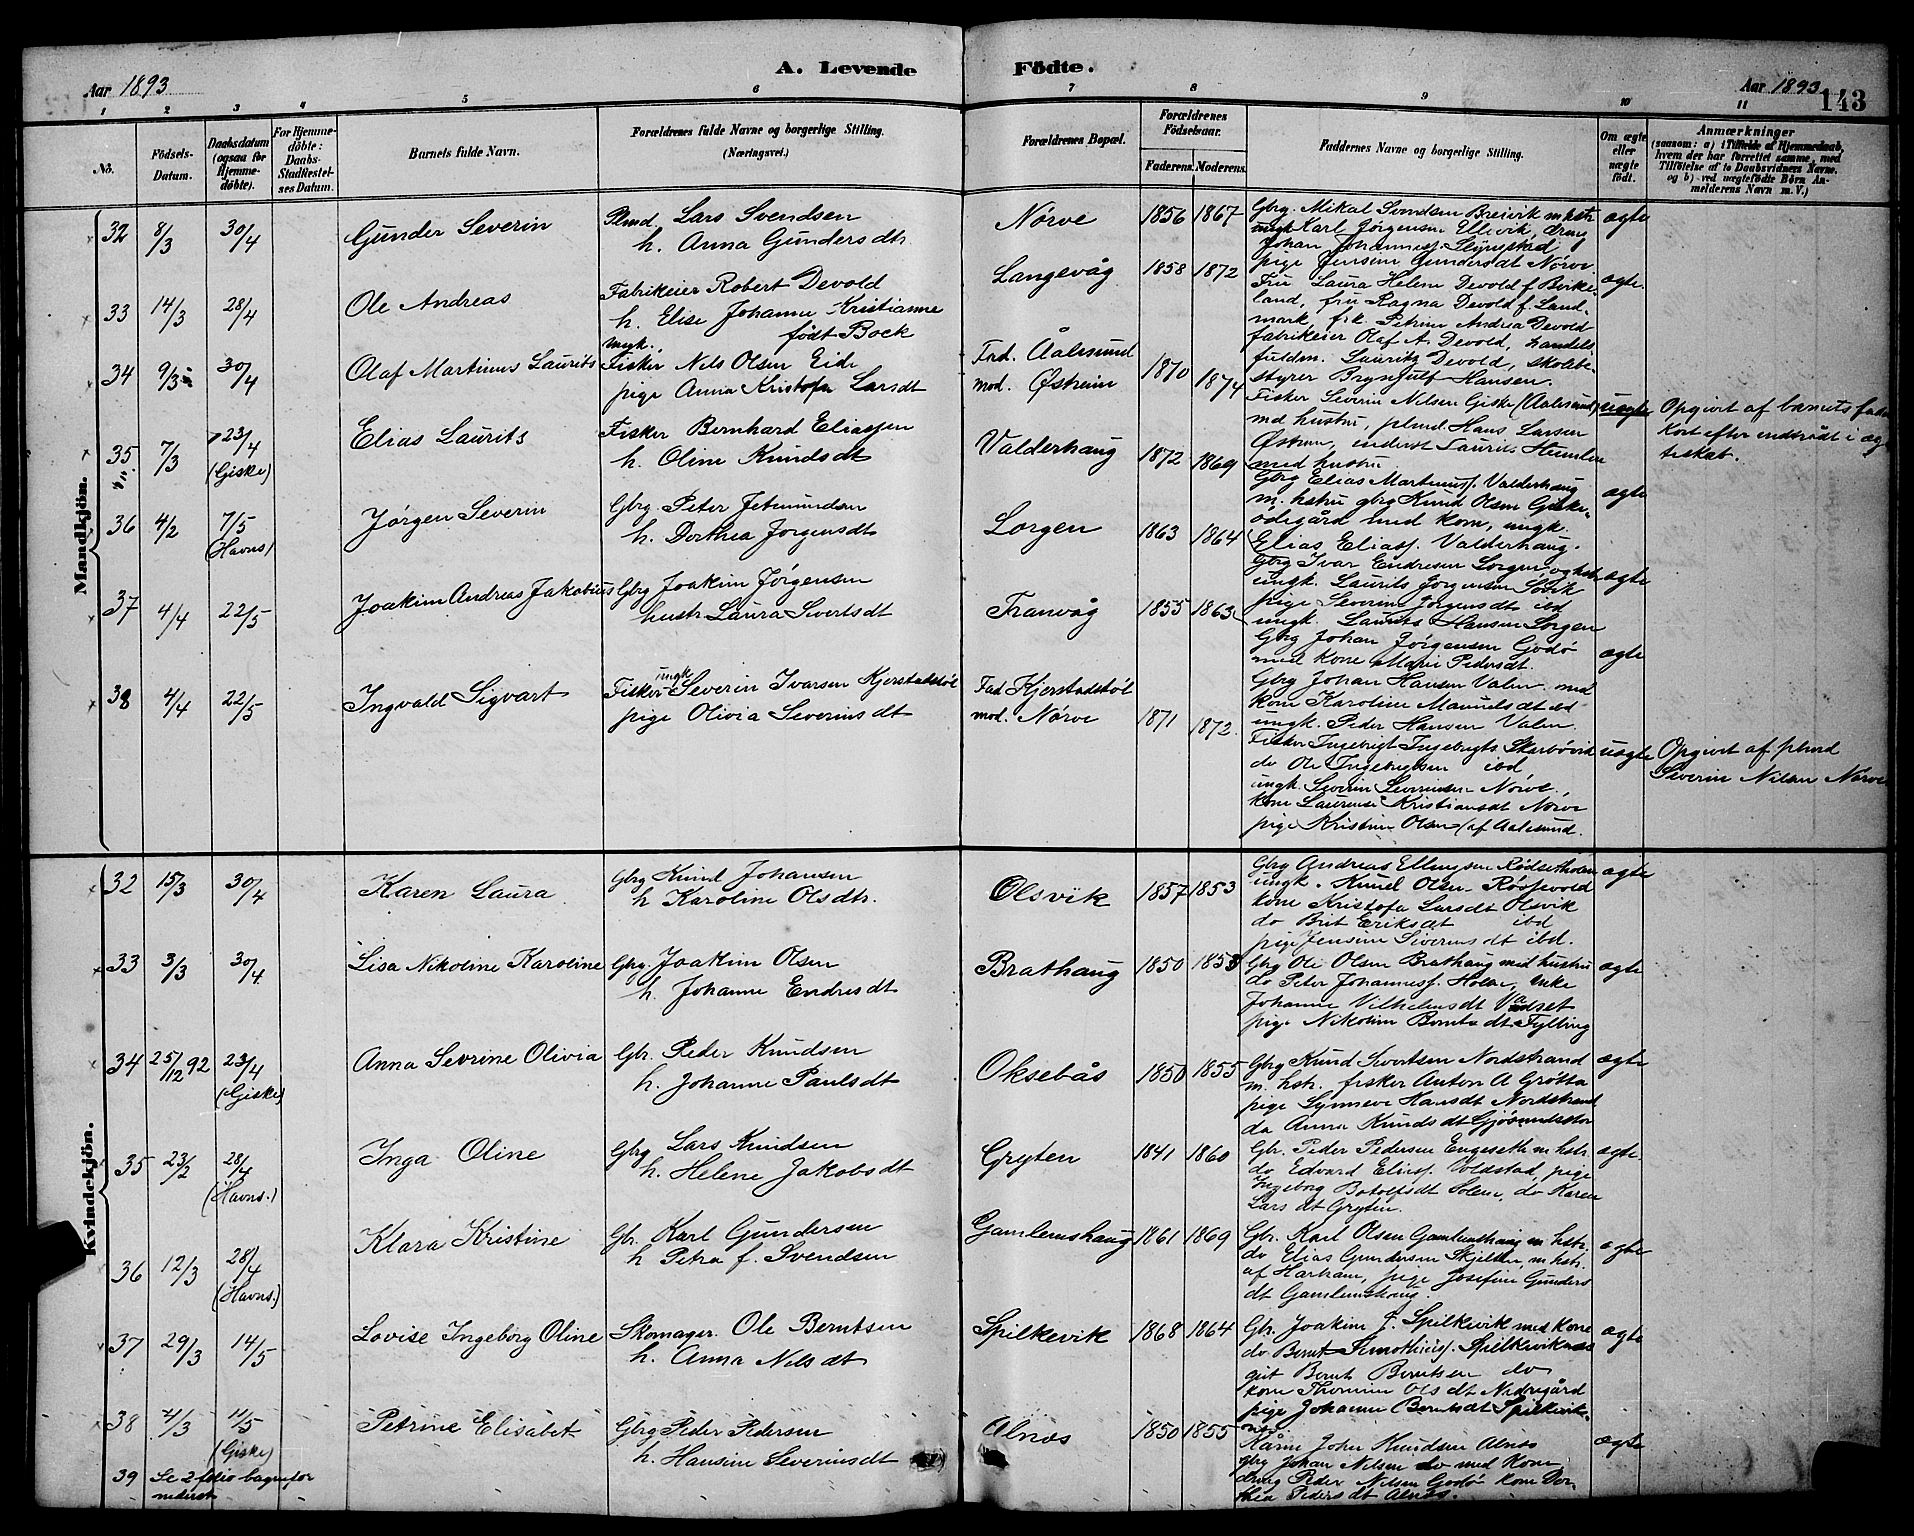 Aar 1893
A. Levende Födte.
Aar 1893
143
1 2 3 4 5 6 7 8 9 10 11
No.
Födsels-Datum.
Daabsdatum (ogsaa for Hjemmedöbte).
For Hjemmedöbte: Daabs-Stadfæstelses Datum.
Barnets fulde Navn.
Forældrenes fulde Navne og borgerlige Stilling. (Næringsvei.)
Forældrenes Bopæl.
Forældrenes Födselsaar.
Faderens. Moderens.
Faddernes Navne og borgerlige Stilling.
Om ægte eller uægte födt.
Anmærkninger
(saasom: a) i Tilfælde af Hjemmedaab, hvem der har forrettet samme, med Tilföielse af to Daabsvidners Navne, og b) ved uægtefödte Börn Anmelderens Navn m. V.)
Mandkjön.
32 8/3 30/4 Gunder Severin Plmd. Lars Svendsen Nørve 1856 1867 Gbrg. Mikal Svendsen Breivik m. hstr ægte
h. Anna Gundersdtr. ungk Karl Jörgensen Ellevik, dreng
Johan Johannesf.
pige Jensine Gundersdt Nørve
33 14/3 28/4 Ole Andreas Fabrikeier Robert Devold Langevåg 1858 1872 Fru Laura Helene Devold f. Birke- ægte.
h. Elise Johanne Kristianne land, fru Ragna Devold f. Land-
født Bock mark, frk. Petrine Andrea Devold
fabrikeier Olaf A Devold, handels
fuldm. Lauritz Devold, skolebe-
styrer Brynjulf Hansen.
34 9/3 30/4 Olaf Martinus Laurits ungk. Fisker Nils Olsen Eide Fad. Aalesund 1870 1874 Fisker Severin Nilsen Giske (Aalesund) uægte Opgivet af barnets fader
pige Anna Kristofa Larsdt mod. Østrem md hustru, plmd Hans Larsen Kort efter indtrådt i æg
Østrem, inderst Laurits Humlen teskab.
med hustru
35 7/3 23/4 (Giske) Elias Laurits Fisker Bernhard Eliassen Valderhaug 1872 1869 Gbrg Elias Martinusf. Valderhaug ægte
h. Oline Knudsdt m. hstru gbrg Knud Olsen Giske-
ödegård med kone, ungk.
Elias Eliasf. Valderhaug.
36 4/2 7/5 (Havns) Jørgen Severin Gbrg Peter Jetmundsen Sorgen 1863 1864 Gbrg Ivar Endresen Sorgen og hstr ægte
h. Dorthea Jørgensdt ungk. Laurits Jørgensen Søvik
pige Severine Jørgensdt ibd
ungk. Laurits Hansen Sorgen
37 4/4 22/5 Joakim Andreas Jakobius Gbrg Joakim Jørgensen Tranvåg 1855 1863 Gbrg Johan Jørgensen Godø ægte
hustr Laura Sivertsdt med kone Marie Pedersdt.
Gbrg Johan Hansen Valen med
kone Karoline
ungk. Peder Hansen Valen
38 4/4 22/5 Ingvald Sigvart Fisker ungk Severin Ivarsen Kjerstadstøl Fad Kjerstadstøl 1871 1872. Fisker Ingebrigt Ingebrigts Skarbøvik uægte Opgivet af plmd
pige Olivia Severinsdt mod. Nørve do Ole Ingebrigtsen ibd Severin Nilsen Nørve
ungk. Severin Severinsen Nørve,
kone Laurense Kristiansdt Nørve
pige Kristine Olsen (af Aalesund.
Kvindekjön.
32 15/3 30/4 Karen Laura Gbrg Knud Johansen Olsvik 1857 1853 Gbrg Andreas Ellingsen Rødsetholen ægte
h Karoline Olsdtr. ungk. Knud Olsen Røssevold
kone Kristofa Larsdt Olsvik
do Brit Eriksdt ibd
pige Jensine Siverinsdt ibd.
33 3/3 30/4 Lisa Nikoline Karoline Gbrg. Joakim Olsen Brathaug 1850 1853 Gbrg Ole Olsen Brathaug med hustru ægte
h. Johanne Endresdt do Peter Johannesf. Holen, enke
Johanne Vilhelmsdt Vadset
pige Nikoline Berntsdt Fylling
34 25/12 92 23/4 (Giske) Anna Sevrine Olivia Gbr. Peder Knudsen Oksebås 1850 1855 Gbrg Knud Sivertsen Nordstrand ægte
h. Johanne Paulsdt m. hstr. fisker Anton A Grøtta
pige Synneve Hansdt Nordstrand
do Anna Knudsdt Gjøsundstør
35 23/2 28/4 (Havns.) Inga Oline Gbrg Lars Knudsen Gryten 1841 1860 Gbr. Peder Pedersen Engeseth m hstr. ægte
h. Helene Jakobsdt do Edvard Eliasf. Voldstad, pige
Ingeborg Botolfsdt Solem, do Karen
Larsdt Gryten.
36 12/3 28/4 (Havns.) Klara Kristine Gbr. Karl Gundersen Gamlemshaug 1861 1869 Gbr. Karl Olsen Gamlemshaug m hstr. ægte
h Petra f. Svendsen do Elias Gundersen Skjelten m hstr.
af Harham, pige Josefine Gunders
dt Gamlemshaug.
37 29/3 14/5 Lovise Ingeborg Oline Skomager. Ole Berntsen Spilkevik 1868 1864 Gbr. Joakim J. Spilkevik med Kone ægte
h. Anna Nilsdt do Bernt Timothiusf. Spilkeviknes
gut Bernt Berntsen do
kone Thomine Olsdt Nedregård
pige Johanne Berntsdt Spilkevik-
nes.
38 4/3 11/5 (Giske) Petrine Elisabet Gbrg Peder Pedersen Alnæs 1850 1855 Kårm John Knudsen Alnæs ægte
h. Hansine Severinsdt gbrg Johan Nilsen do med Kone
dreng Peder Nilsen Godø kone Dor-
thea Pedersdt Alnæs.
39 Se 2 folio bagenfor
nederst